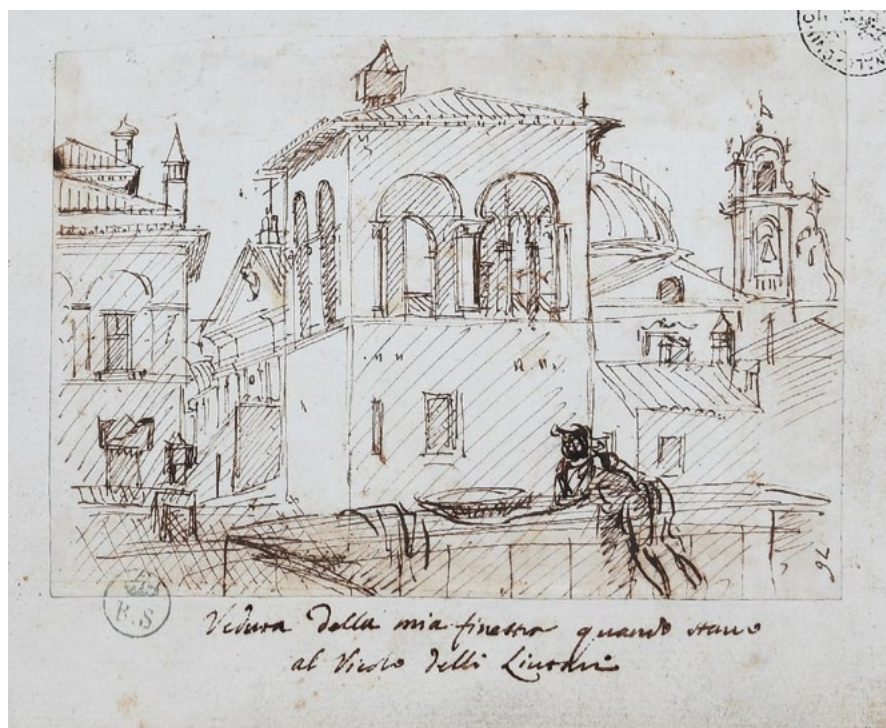 B.S
Veduta della mia finestra quando stavo
al Vicolo delli Liutari